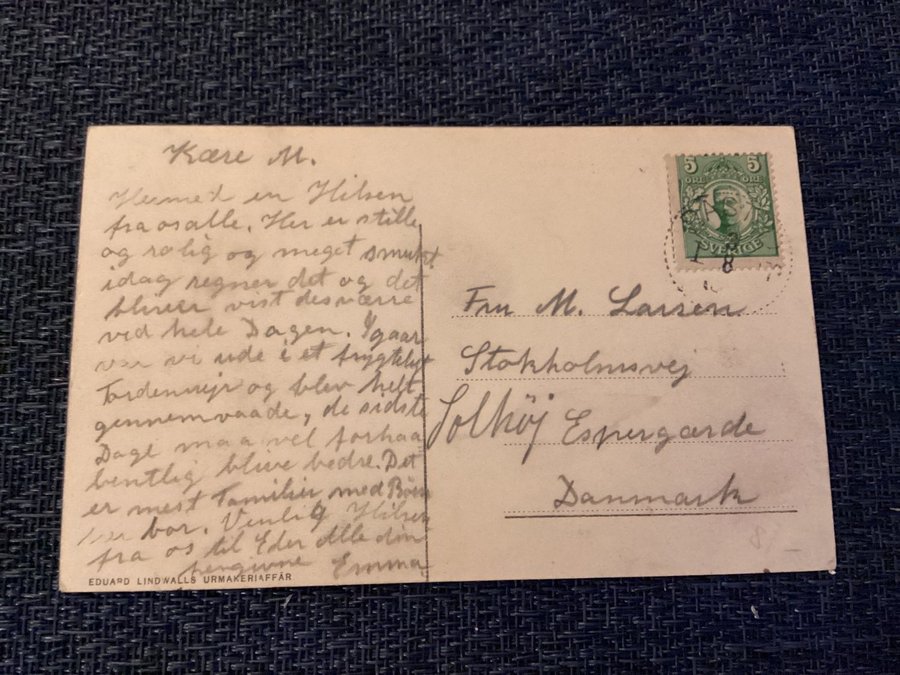 Kære M.
Hermed en Hilsen
fra os alle. Her er stille
og rolig og meget smukt
idag regner det og det
bliver vist desværre
ved hele Dagen. Igaar
var vi ude i et frygteligt
Tordenvejr og blev helt
gennemvaade, de sidste
Dage maa vel forhaa
bentlig blive bedre. Det
er mest Familier med Børn
her bor. Venlig Hilsen
fra os til Eder Alle din
hengivne Emma
EDUARD LINDWALLS URMAKERIAFFÄR
5 5
ÖRE ÖRE
SVERIGE
BÅST
1 8
Fru M. Larsen
Stokholmsvej
Solhöj Espergærde
Danmark